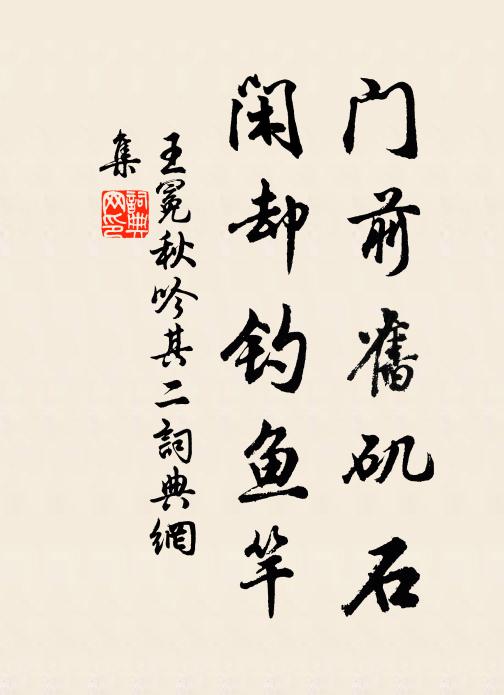 门前舊矶石
闲却钓鱼竿
王冕秋吟其二詞典網
集
詞典
网印